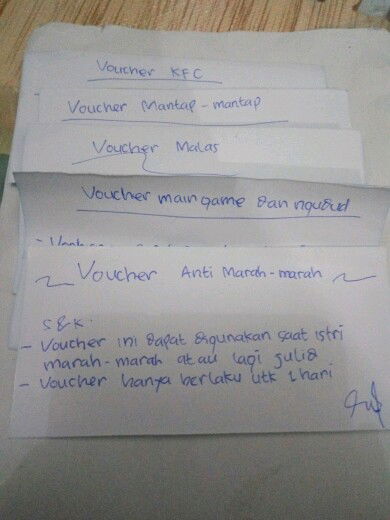 Voucher KFC
Voucher Mantap-mantap
Voucher Malas
Voucher main game dan ngudud
~ Voucher Anti Marah-marah ~
S&K.
- Voucher ini dapat digunakan saat istri
marah-marah atau lagi julid
- Voucher hanya berlaku utk 1 hari